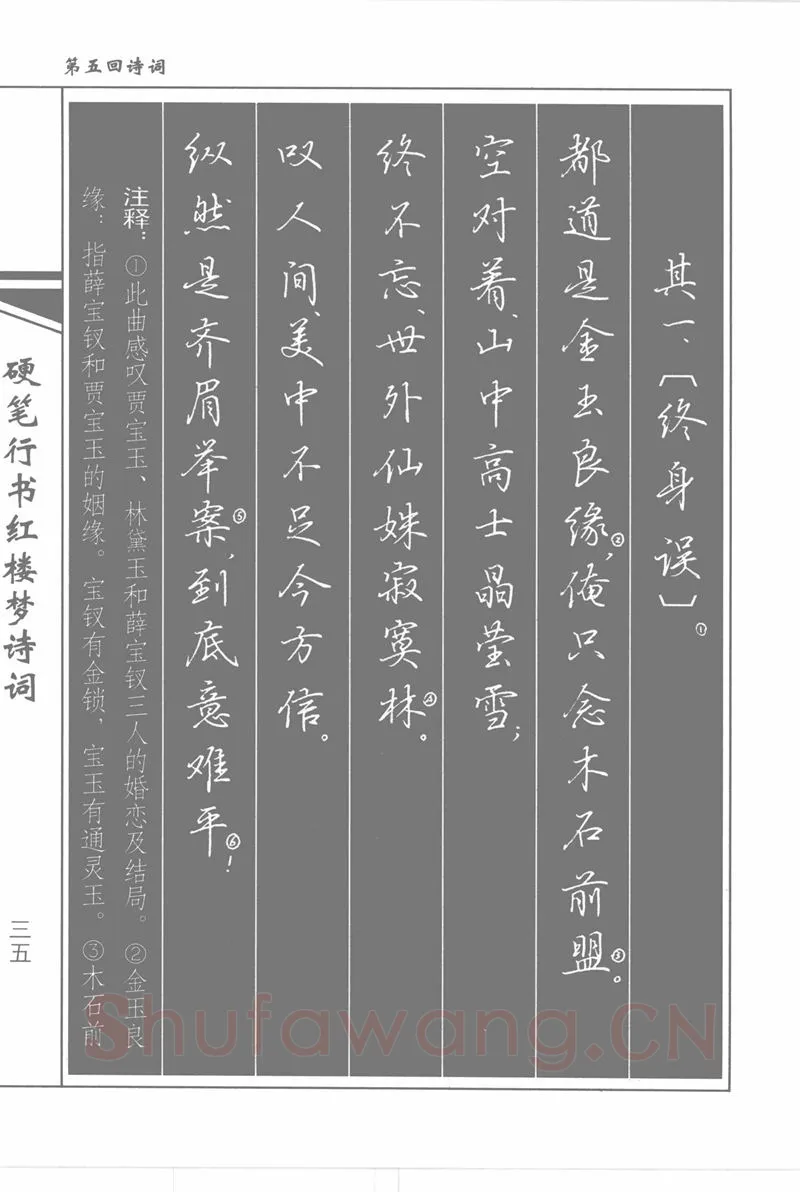 第五回诗词
其一、〔终身误〕①
都道是金玉良缘②，俺只念木石前盟③。
空对着、山中高士晶莹雪；
终不忘、世外仙姝寂寞林④。
叹人间、美中不足今方信。
纵然是齐眉举案⑤，到底意难平⑥！
注释：①此曲感叹贾宝玉、林黛玉和薛宝钗三人的婚恋及结局。②金玉良
缘：指薛宝钗和贾宝玉的姻缘。宝钗有金锁，宝玉有通灵玉。③木石前
硬笔行书红楼梦诗词
三五
Shufawang.CN